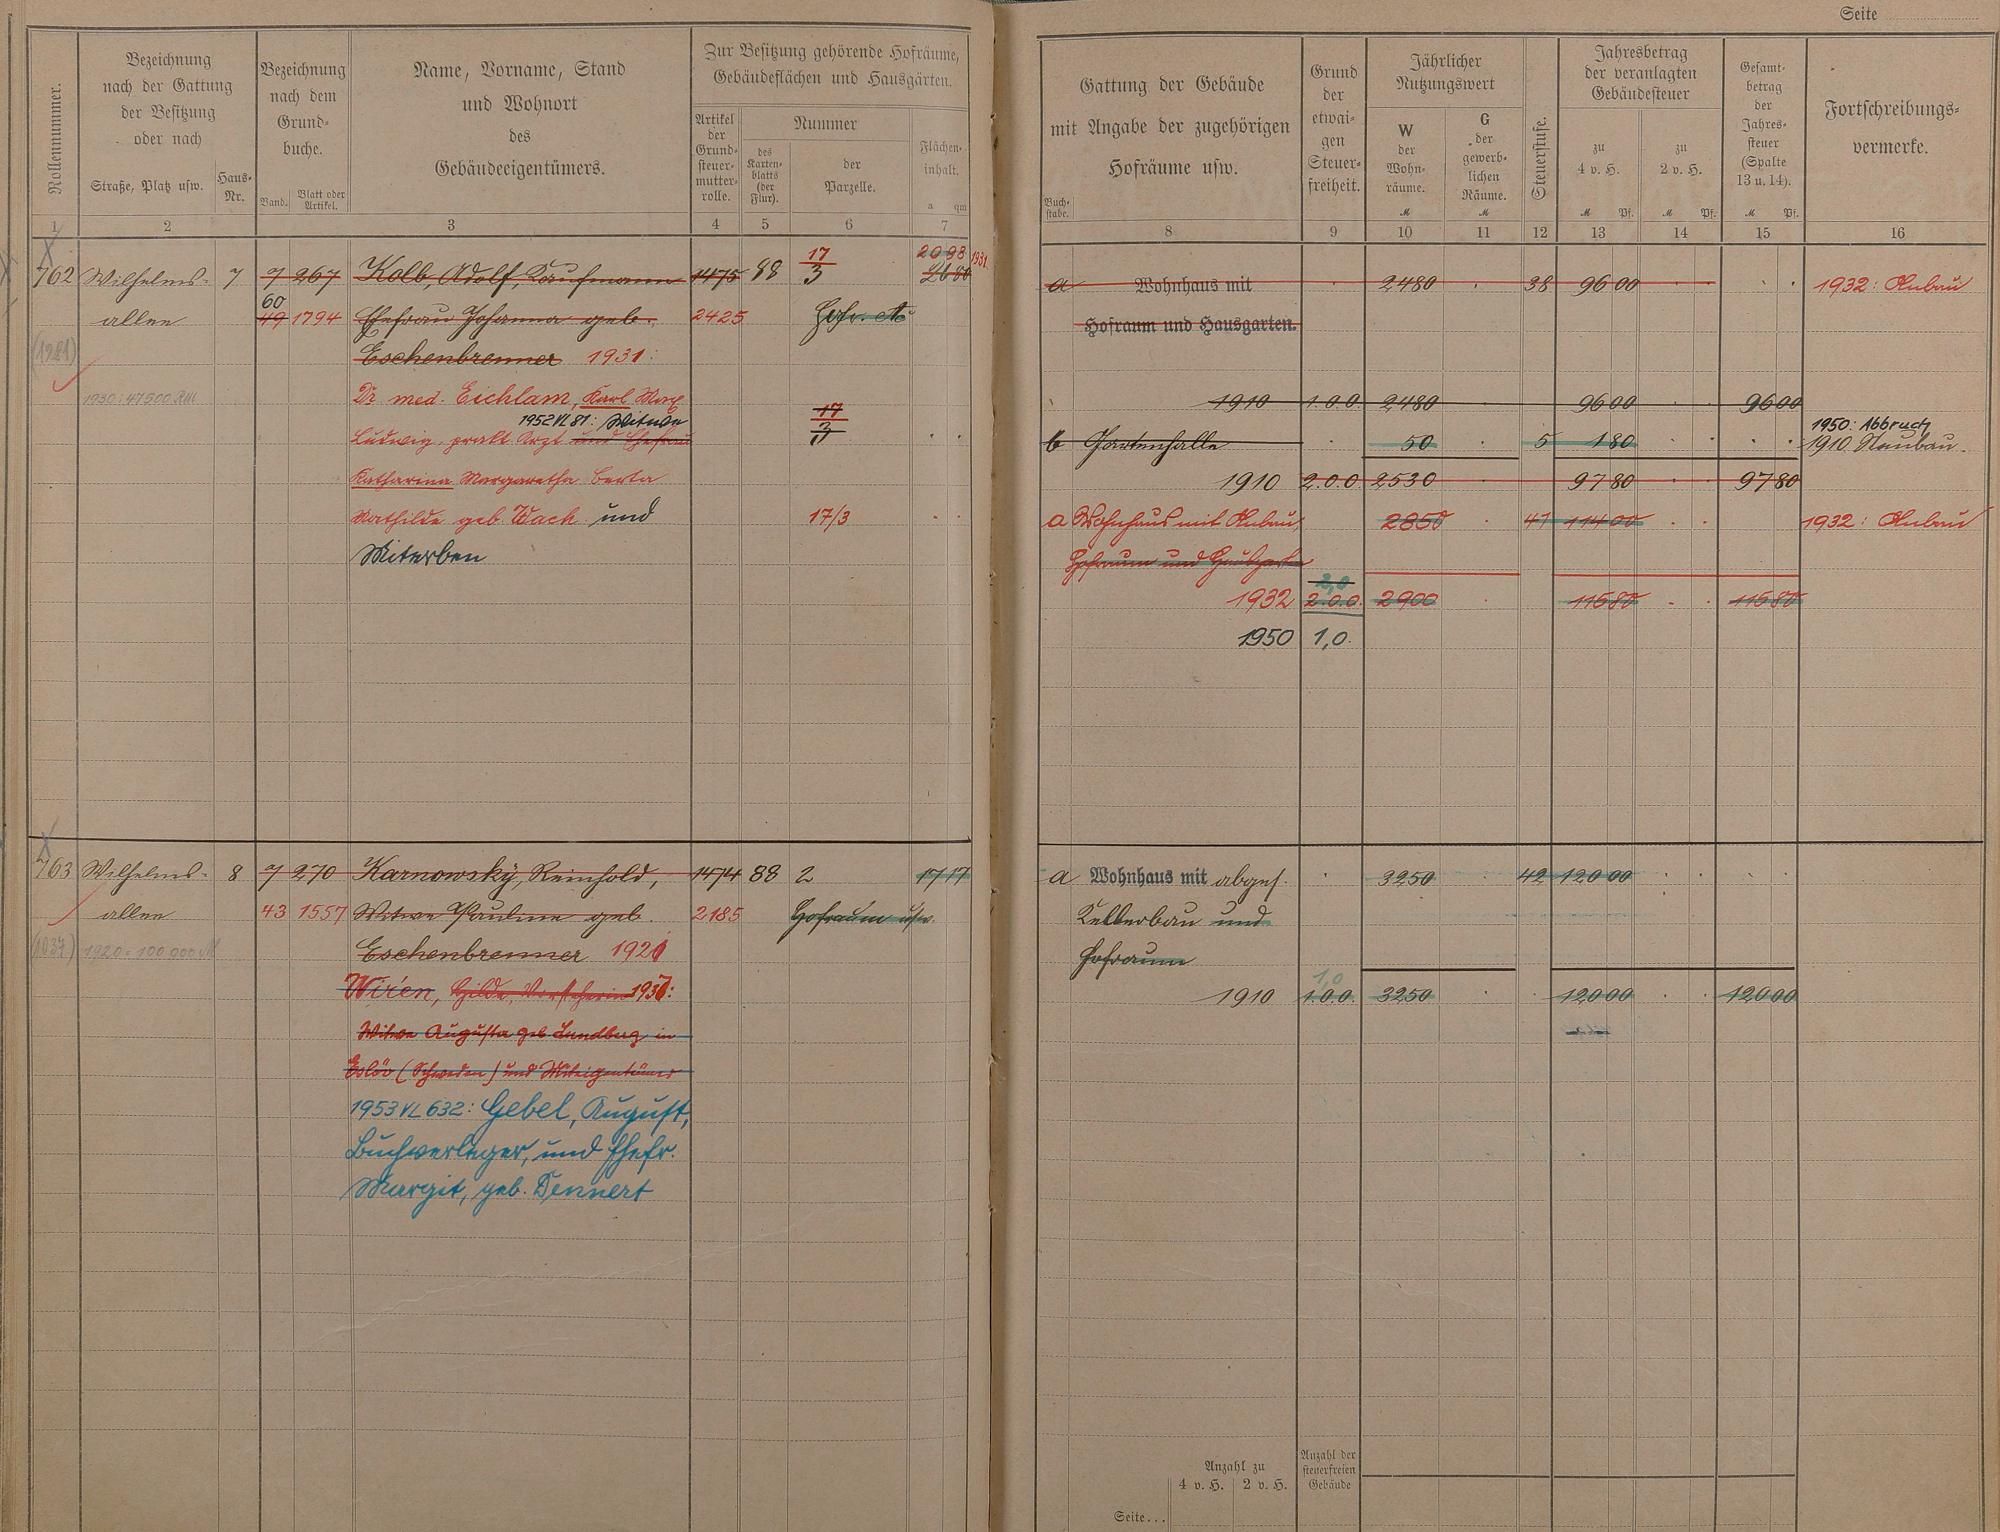 Seite
Rollennummer.
Bezeichnung
nach der Gattung
der Besitzung
oder nach
Straße, Platz usw.
Haus-
Nr.
Bezeichnung
nach dem
Grund-
buche.
Band.
Blatt oder
Artikel.
Name, Vorname, Stand
und Wohnort
des
Gebäudeeigentümers.
Zur Besitzung gehörende Hofräume,
Gebäudeflächen und Hausgärten.
Artikel
der
Grund-
steuer-
mutter-
rolle.
Nummer
des
Karten-
blatts
(der
Flur).
der
Parzelle.
Flächen-
inhalt.
a qm
1 2 3 4 5 6 7
762 Wilhelms- 7 7 267 Kolb, Adolf, Kaufmann 1475 88 17/3 2098 1931
2680
allee 60 49 1794 Ehefrau Johanna geb. 2425 Hofr. etc
(1281) Eschenbrenner 1931:
1930: 47500 RM Dr. med. Eichlam, Karl
1952 VL 81: Witwe 17/3
Ludwig, prakt. Arzt und Ehefrau
Katharina Margaretha Berta
Mathilde geb. Wach und 17/3
Miterben
763 Wilhelms- 8 7 270 Karnowsky, Reinhold, 1474 88 2 1717
allee 43 1557 Witwe Pauline geb. 2185 Hofraum usw.
(1037) 1920 = 100 000 M Eschenbrenner 1920
Wirén, Hilde, Vorsteherin 1937:
Witwe Augusta geb. Lundberg in
Eslöv (Schweden) und Miteigentümer
1953 VL 632: Gebel, August,
Buchverleger, und Ehefr.
Margit, geb. Dennert
Gattung der Gebäude
mit Angabe der zugehörigen
Hofräume usw.
Buch-
stabe.
Grund
der
etwai-
gen
Steuer-
freiheit.
Jährlicher
Nutzungswert
W
der
Wohn-
räume.
M
G
der
gewerb-
lichen
Räume.
M
Steuerstufe.
Jahresbetrag
der veranlagten
Gebäudesteuer
zu
4 v. H.
M Pf.
zu
2 v. H.
M Pf.
Gesamt-
betrag
der
Jahres-
steuer
(Spalte
13 u. 14).
M Pf.
Fortschreibungs-
vermerke.
8 9 10 11 12 13 14 15 16
a Wohnhaus mit 2480 38 96 00 1932: Anbau
Hofraum und Hausgarten.
1910 1.0.0. 2480 96 00 96 00
1950: Abbruch
b Gartenhalle 50 5 1 80 1910 Neubau.
1910 2.0.0. 2530 97 80 97 80
a Wohnhaus mit Anbau, 2850 41 114 00 1932: Anbau
Hofraum und Hausgarten
2,0
1932 2.0.0. 2900 115 80 115 80
1950 1,0.
a Wohnhaus mit abges. 3250 42 120 00
Kellerbau und
Hofraum
1,0
1910 1.0.0. 3250 120 00 120 00
Anzahl zu
4 v. H. 2 v. H.
Anzahl der
steuerfreien
Gebäude
Seite...